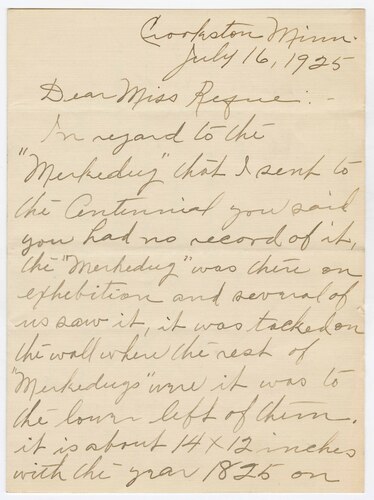 Crookston Minn.
July 16, 1925
Dear Miss Reque: -
In regard to the
"Merkedug" that I sent to
the Centennial you said
you had no record of it,
the "Merkedug" was there on
exhebition and several of
us saw it, it was tacked on
the wall where the rest of
"Merkedugs" were it was to
the lower left of them.
it is about 14 x 12 inches
with the year 1825 on